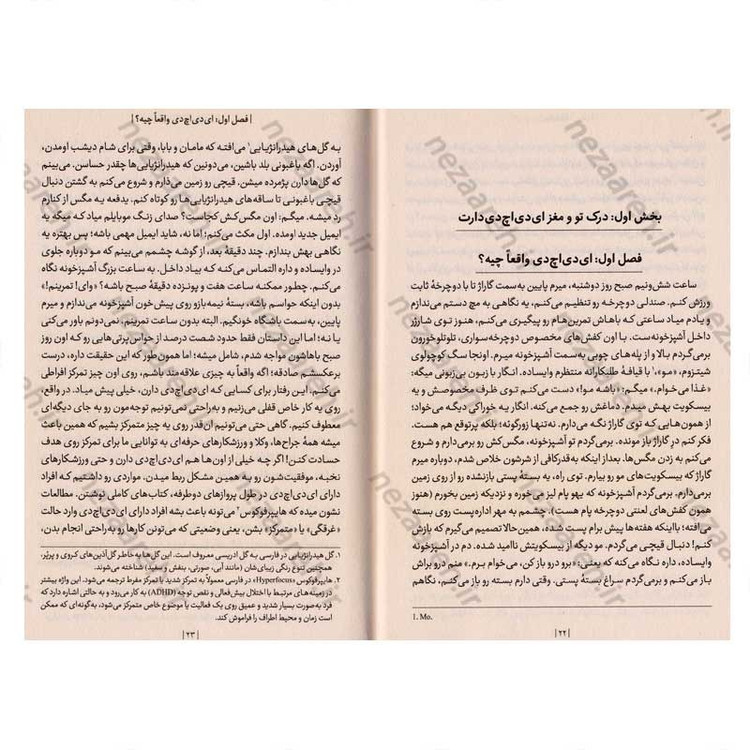 بخش اول: درک تو و مغز ای‌دی‌اچ‌دی‌دارت
فصل اول: ای‌دی‌اچ‌دی واقعاً چیه؟
ساعت شش‌ونیم صبح روز دوشنبه، میرم پایین به‌سمت گاراژ تا با دوچرخهٔ ثابت
ورزش کنم. صندلی دوچرخه رو تنظیم می‌کنم، یه نگاهی به مچ دستم می‌ندازم
و یادم میاد ساعتی که باهاش تمرین‌هام رو پیگیری می‌کنم، هنوز توی شارژر
داخل آشپزخونه‌ست. با اون کفش‌های مخصوص دوچرخه‌سواری، تلوتلوخورون
برمی‌گردم بالا و از پله‌های چوبی به‌سمت آشپزخونه میرم. اونجا سگ کوچولوی
شیتزوم، «مو»¹ با قیافهٔ طلبکارانه منتظرم وایساده. انگار با زبون بی‌زبونی میگه:
«غذا می‌خوام.» میگم: «باشه مو!» دست می‌کنم توی ظرف مخصوصش و یه
بیسکویت بهش میدم. دماغش رو جمع می‌کنه. انگار یه خوراکی دیگه می‌خواد؛
از همون‌هایی که توی گاراژ نگه می‌دارم. نه‌تنها زورگوئه؛ بلکه پرتوقع هم هست.
فکر کنم درِ گاراژ باز مونده. برمی‌گردم تو آشپزخونه، مگس‌کش رو برمی‌دارم و شروع
می‌کنم به زدن مگس‌ها. بعداز اینکه به‌قدرکافی از شرشون خلاص شدم، دوباره میرم
گاراژ که بیسکویت‌های مو رو بیارم. توی راه، یه بستهٔ پستی بازنشده رو از روی زمین
برمی‌دارم. برمی‌گردم آشپزخونه که یهو پام لیز می‌خوره و نزدیکه زمین بخورم (هنوز
همون کفش‌های لعنتی دوچرخه پام هست). چشمم به مهر ادارهٔ‌پست روی بسته
می‌افته؛ بااینکه هفته‌ها پیش برام پست شده، همین‌حالا تصمیم می‌گیرم که بازش
کنم! دنبال قیچی می‌گردم. مو دیگه از بیسکویتش ناامید شده. دم در آشپزخونه
وایساده، داره نگاه می‌کنه که یعنی: «برو درو باز کن، می‌خوام برم.» منم درو براش
باز می‌کنم و برمی‌گردم سراغ بستهٔ پستی. وقتی دارم بسته رو باز می‌کنم، نگاهم
1. Mo.
| ۲۲ |
| فصل اول: ای‌دی‌اچ‌دی واقعاً چیه؟ |
به گل‌های هیدرانژیایی¹ می‌افته که مامان و بابا، وقتی برای شام دیشب اومدن،
آوردن. اگه باغبونی بلد باشین، می‌دونین که هیدرانژیایی‌ها چقدر حساسن. می‌بینم
که گل‌ها دارن پژمرده میشن. قیچی رو زمین می‌ذارم و شروع می‌کنم به گشتن دنبال
قیچی باغبونی تا ساقه‌های هیدرانژیایی‌ها رو کوتاه کنم. یه‌دفعه یه مگس از کنارم
رد میشه. میگم: اون مگس‌کش کجاست؟ صدای زنگ موبایلم میاد که میگه یه
ایمیل جدید اومده. اول مکث می‌کنم؛ اما نه، شاید ایمیل مهمی باشه؛ پس بهتره یه
نگاهی بهش بندازم. چند دقیقهٔ بعد، از گوشه چشمم می‌بینم که مو دوباره جلوی
در وایساده و داره التماس می‌کنه که بیاد داخل. به ساعت بزرگ آشپزخونه نگاه
می‌کنم. چطور ممکنه ساعت هفت و پونزده دقیقهٔ صبح باشه؟ «وای! تمرینم!»
بدون اینکه حواسم باشه، بستهٔ نیمه‌بازو روی پیش خون آشپزخونه می‌ذارم و میرم
پایین، به‌سمت باشگاه خونگیم. البته بدون ساعت تمرینم. نمی‌دونم باور می‌کنی
یا نه؛ اما این داستان فقط حدود شصت درصد از حواس‌پرتی‌هایی رو که اون روز
صبح باهاشون مواجه شدم، شامل میشه؛ اما همون‌طور که این حقیقت داره، درست
برعکسشم صادقه؛ اگه واقعاً به چیزی علاقه‌مند باشم، روی اون چیز تمرکز افراطی
می‌کنم. این رفتار برای کسایی که ای‌دی‌اچ‌دی دارن، خیلی پیش میاد. در واقع،
روی یه کار خاص قفلی می‌زنیم و به‌راحتی نمی‌تونیم توجه‌مون رو به جای دیگه‌ای
معطوف کنیم. گاهی حتی می‌تونیم ان‌قدر روی یه چیز متمرکز بشیم که همین باعث
میشه همهٔ جراح‌ها، وکلا و ورزشکارهای حرفه‌ای به توانایی ما برای تمرکز روی هدف
حسادت کنن! اگر چه خیلی از اون‌ها هم ای‌دی‌اچ‌دی دارن و حتی ورزشکارهای
نخبه، موفقیت‌شون رو به همین مشکل ربط میدن. مواردی رو داشتیم که افراد
دارای ای‌دی‌اچ‌دی در طول پروازهای دوطرفه، کتاب‌های کاملی نوشتن. مطالعات
نشون میده که هایپرفوکوس² می‌تونه باعث بشه افراد دارای ای‌دی‌اچ‌دی وارد حالت
«غرقگی» یا «متمرکز» بشن، یعنی وضعیتی که می‌تونن کارها رو به‌راحتی انجام بدن،
۱. گل هیدرانژیایی در فارسی به گل ادریسی معروف است. این گل‌ها به خاطر گل‌آذین‌های کروی و پرپُر،
همچنین تنوع رنگی زیبای‌شان (مانند آبی، صورتی، بنفش و سفید) شناخته می‌شوند.
۲. هایپرفوکوس «Hyperfocus» در فارسی معمولاً به تمرکز شدید یا تمرکز مفرط ترجمه می‌شود. این واژه بیشتر
در زمینه‌های مرتبط با اختلال بیش‌فعالی و نقص توجه (ADHD) به کار می‌رود و به حالتی اشاره دارد که
فرد به‌صورت بسیار شدید و عمیق روی یک فعالیت یا موضوع خاص متمرکز می‌شود، به‌گونه‌ای که ممکن
است زمان و محیط اطراف را فراموش کند.
| ۲۳ |
nezaareh.ir